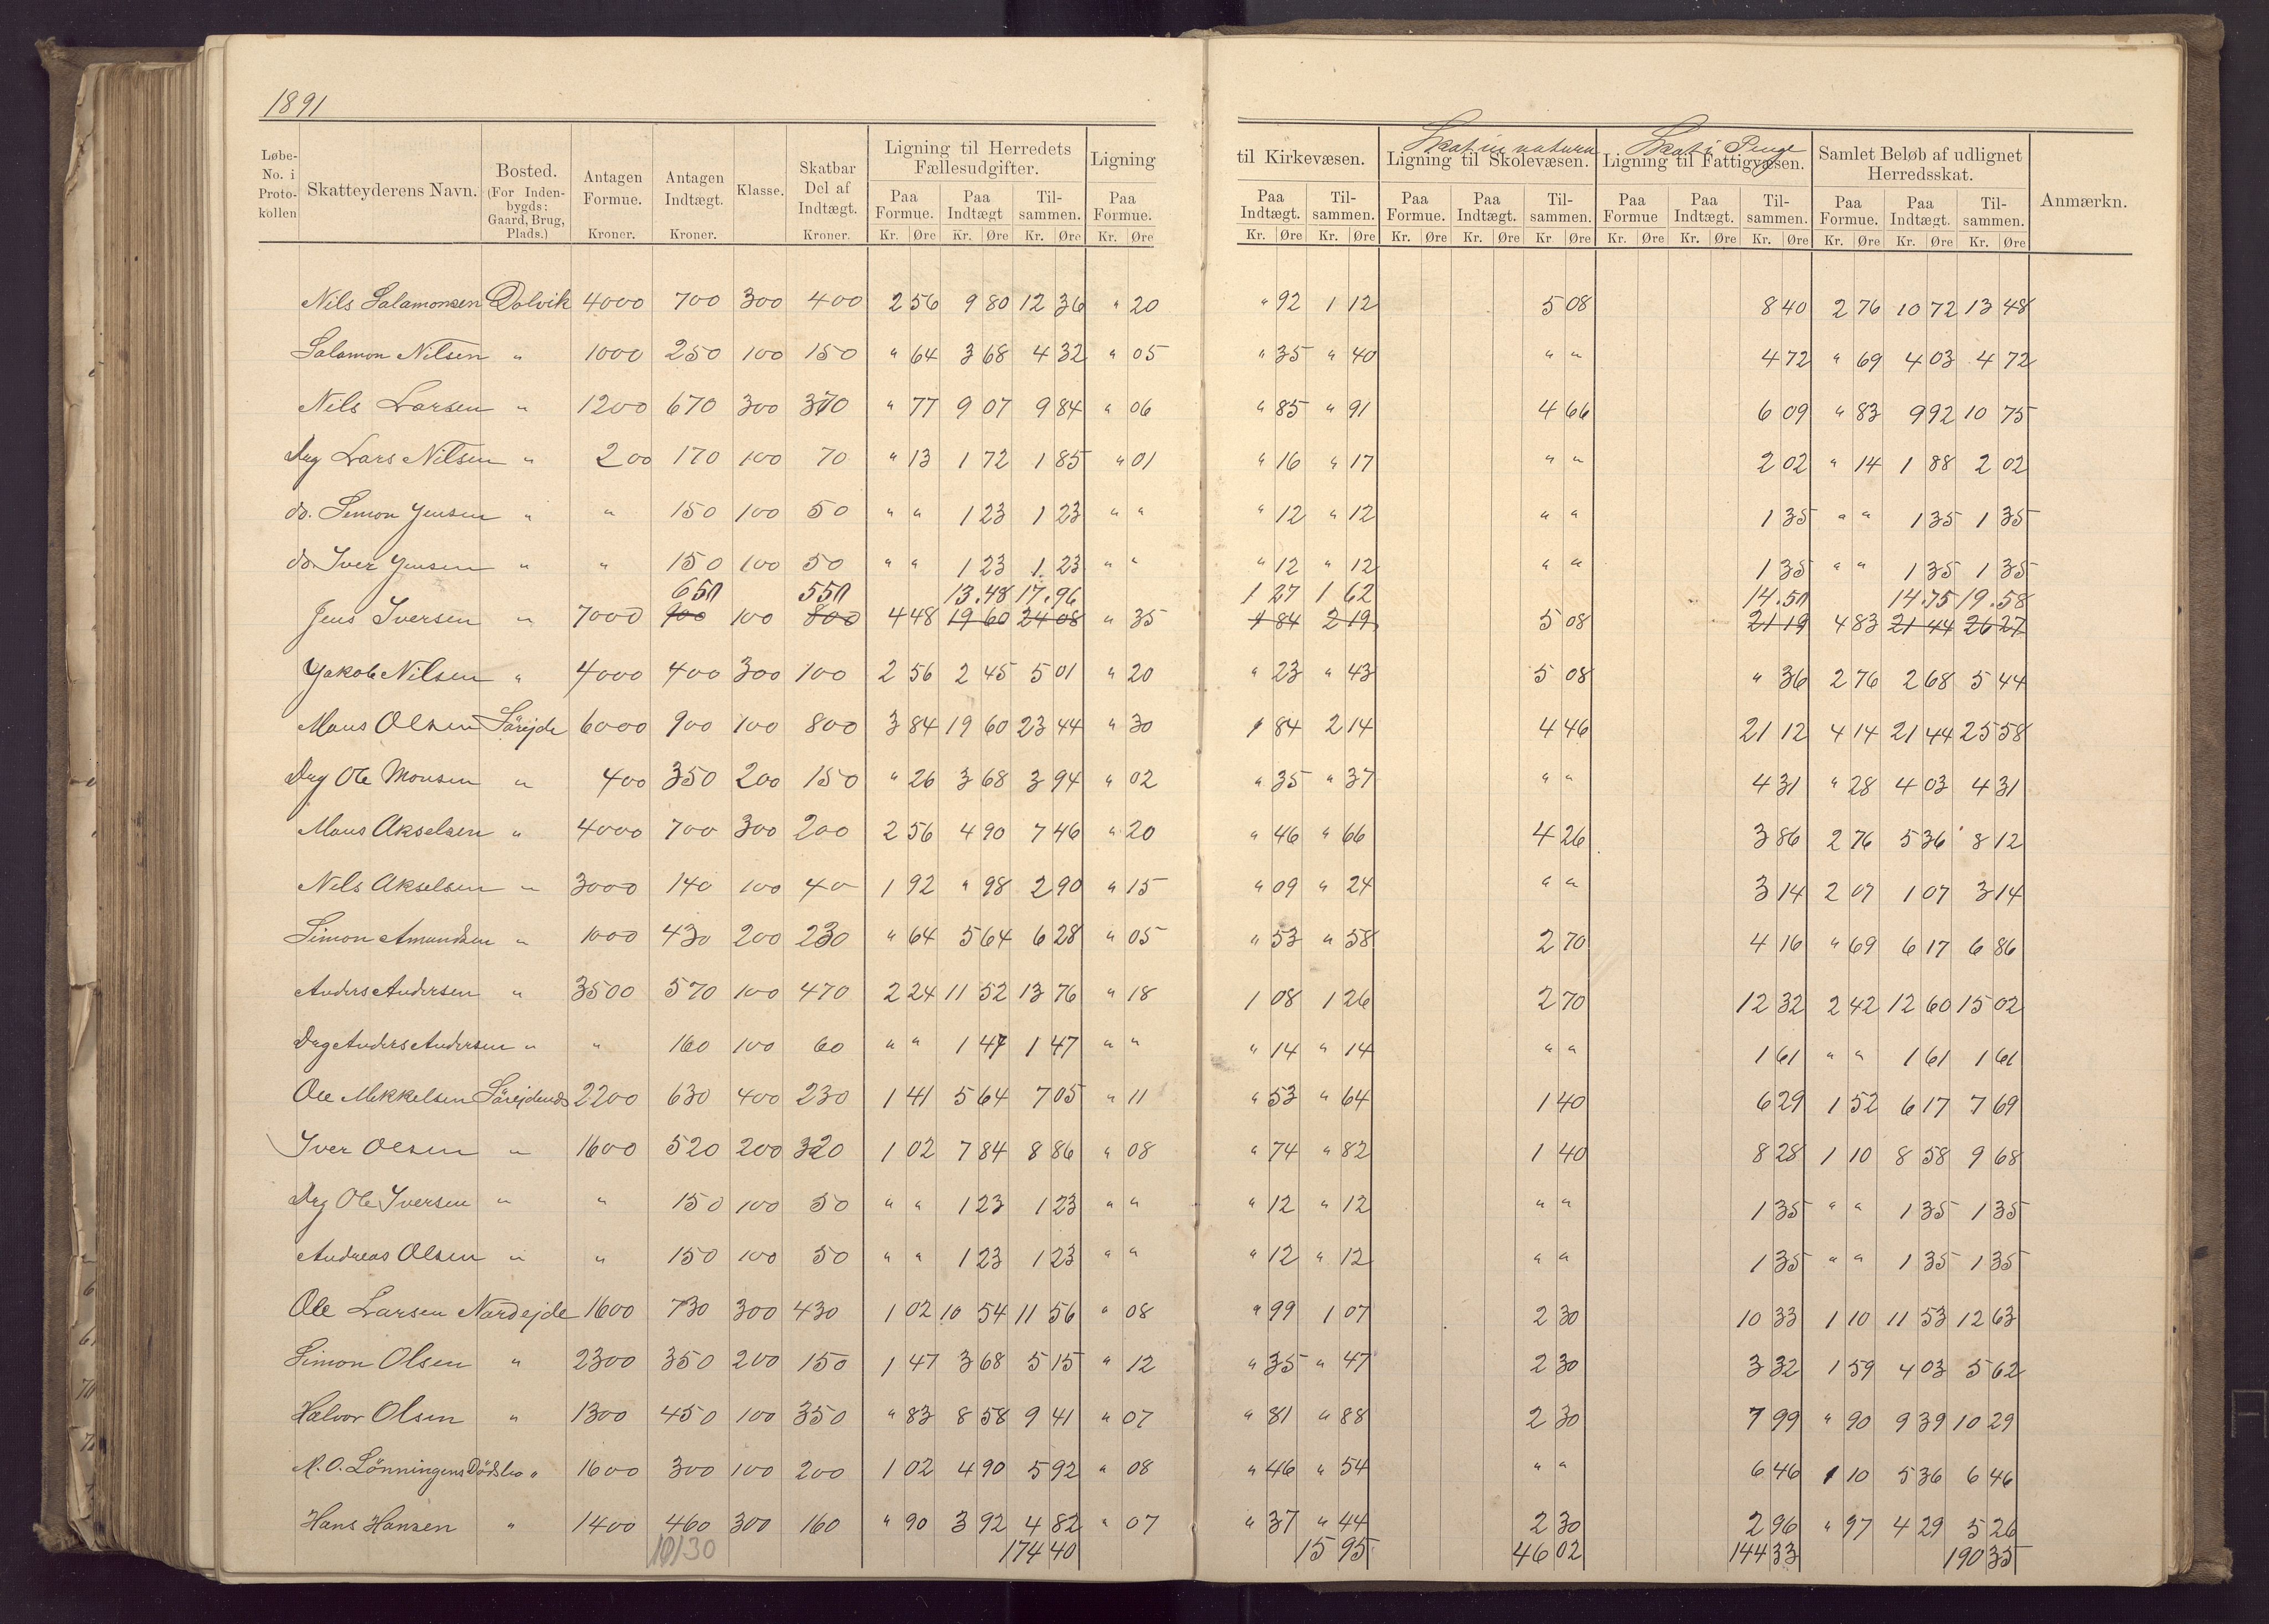 1891
Løbe-No. i Proto-kollen | Skatteyderens Navn. | Bosted. (For Inden-bygds: Gaard, Brug, Plads.) | Antagen Formue. Kroner. | Antagen Indtægt. Kroner. | Klasse. | Skatbar Del af Indtægt. Kroner. | Ligning til Herredets Fællesudgifter. Paa Formue. Kr. Øre Paa Indtægt Kr. Øre Til-sammen. Kr. Øre | Ligning Paa Formue. Kr. Øre | til Kirkevæsen. Paa Indtægt. Kr. Øre Til-sammen. Kr. Øre | Skat in natura Ligning til Skolevæsen. Paa Formue. Kr. Øre Paa Indtægt. Kr. Øre Til-sammen. Kr Øre | Skat i Penge Ligning til Fattigvæsen. Paa Formue Kr. Øre Paa Indtægt. Kr. Øre Til-sammen. Kr. Øre | Samlet Beløb af udlignet Herredsskat. Paa Formue. Kr. Øre Paa Indtægt. Kr. Øre Til-sammen. Kr. Øre | Anmærkn.
Nils Salamonsen Dolvik 4000 700 300 400 2 56 9 80 12 36 " 20 " 92 1 12 5 08 8 40 2 76 10 72 13 48
Salamon Nilsen " 1000 250 100 150 " 64 3 68 4 32 " 05 " 35 " 40 " " 4 72 " 69 4 03 4 72
Nils Larsen " 1200 670 300 370 " 77 9 07 9 84 " 06 " 85 " 91 4 66 6 09 " 83 9 92 10 75
Drg Lars Nilsen " 200 170 100 70 " 13 1 72 1 85 " 01 " 16 " 17 " " 2 02 " 14 1 88 2 02
do. Simon Jensen " " 150 100 50 " " 1 23 1 23 " " " 12 " 12 " " 1 35 " " 1 35 1 35
do. Iver Jensen " " 150 100 50 " " 1 23 1 23 " " " 12 " 12 " " 1 35 " " 1 35 1 35
650 550 13.48 17.96 1 27 1 62 14.50 14.75 19.58
Jens Iversen " 7000 900 100 800 4 48 19 60 24 08 " 35 1 84 2 19 5 08 21 19 4 83 21 44 26 27
Jakob Nilsen " 4000 400 300 100 2 56 2 45 5 01 " 20 " 23 " 43 5 08 " 36 2 76 2 68 5 44
Mons Olsen Sörejde 6000 900 100 800 3 84 19 60 23 44 " 30 1 84 2 14 4 46 21 12 4 14 21 44 25 58
Drg Ole Monsen " 400 350 200 150 " 26 3 68 3 94 " 02 " 35 " 37 " " 4 31 " 28 4 03 4 31
Mons Akselsen " 4000 700 300 200 2 56 4 90 7 46 " 20 " 46 " 66 4 26 3 86 2 76 5 36 8 12
Nils Akselsen " 3000 140 100 40 1 92 " 98 2 90 " 15 " 09 " 24 " " 3 14 2 07 1 07 3 14
Simon Amundsen " 1000 430 200 230 " 64 5 64 6 28 " 05 " 53 " 58 2 70 4 16 " 69 6 17 6 86
Anders Andersen " 3500 570 100 470 2 24 11 52 13 76 " 18 1 08 1 26 2 70 12 32 2 42 12 60 15 02
Drg Anders Andersen " " 160 100 60 " " 1 47 1 47 " " " 14 " 14 " " 1 61 " " 1 61 1 61
Ole Mikkelsen 2200 630 400 230 1 41 5 64 7 05 " 11 " 53 " 64 1 40 6 29 1 52 6 17 7 69
Iver Olsen " 1600 520 200 320 1 02 7 84 8 86 " 08 " 74 " 82 1 40 8 28 1 10 8 58 9 68
Drg Ole Iversen " " 150 100 50 " " 1 23 1 23 " " " 12 " 12 " " 1 35 " " 1 35 1 35
Andreas Olsen " " 150 100 50 " " 1 23 1 23 " " " 12 " 12 " " 1 35 " " 1 35 1 35
Ole Larsen Nordejde 1600 730 300 430 1 02 10 54 11 56 " 08 " 99 1 07 2 30 10 33 1 10 11 53 12 63
Simon Olsen " 2300 350 200 150 1 47 3 68 5 15 " 12 " 35 " 47 2 30 3 32 1 59 4 03 5 62
Halvor Olsen " 1300 450 100 350 " 83 8 58 9 41 " 07 " 81 " 88 2 30 7 99 " 90 9 39 10 29
M. O. Lönningens Dödsbo " 1600 300 100 200 1 02 4 90 5 92 " 08 " 46 " 54 " " 6 46 1 10 5 36 6 46
Hans Hansen " 1400 460 300 160 " 90 3 92 4 82 " 07 " 37 " 44 2 30 2 96 " 97 4 29 5 26
10130 174 40 15 95 46 02 144 33 190 35